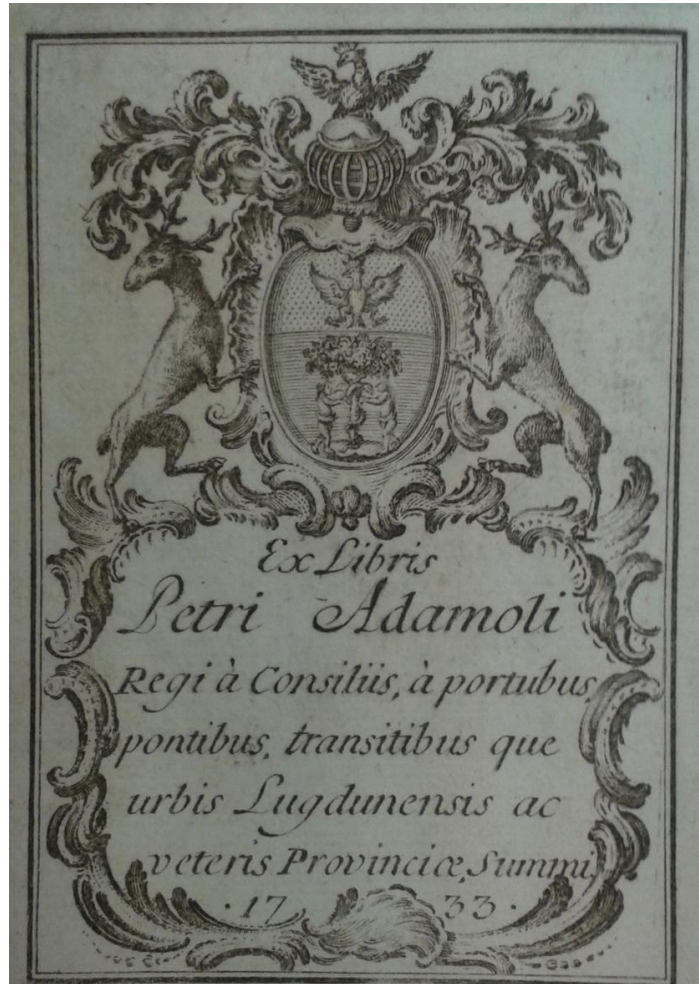 Ex Libris
Petri Adamoli
Regi à Consiliis, à portubus,
pontibus, transitibus que
urbis Lugdunensis ac
veteris Provinciæ, Summi,
·17 33·